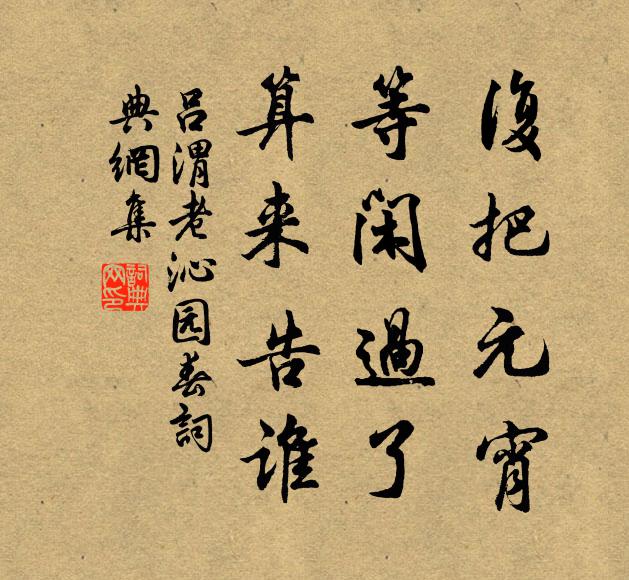 復把元宵
等閑過了
算来告誰
吕渭老沁园春詞
典網集
詞典
网印